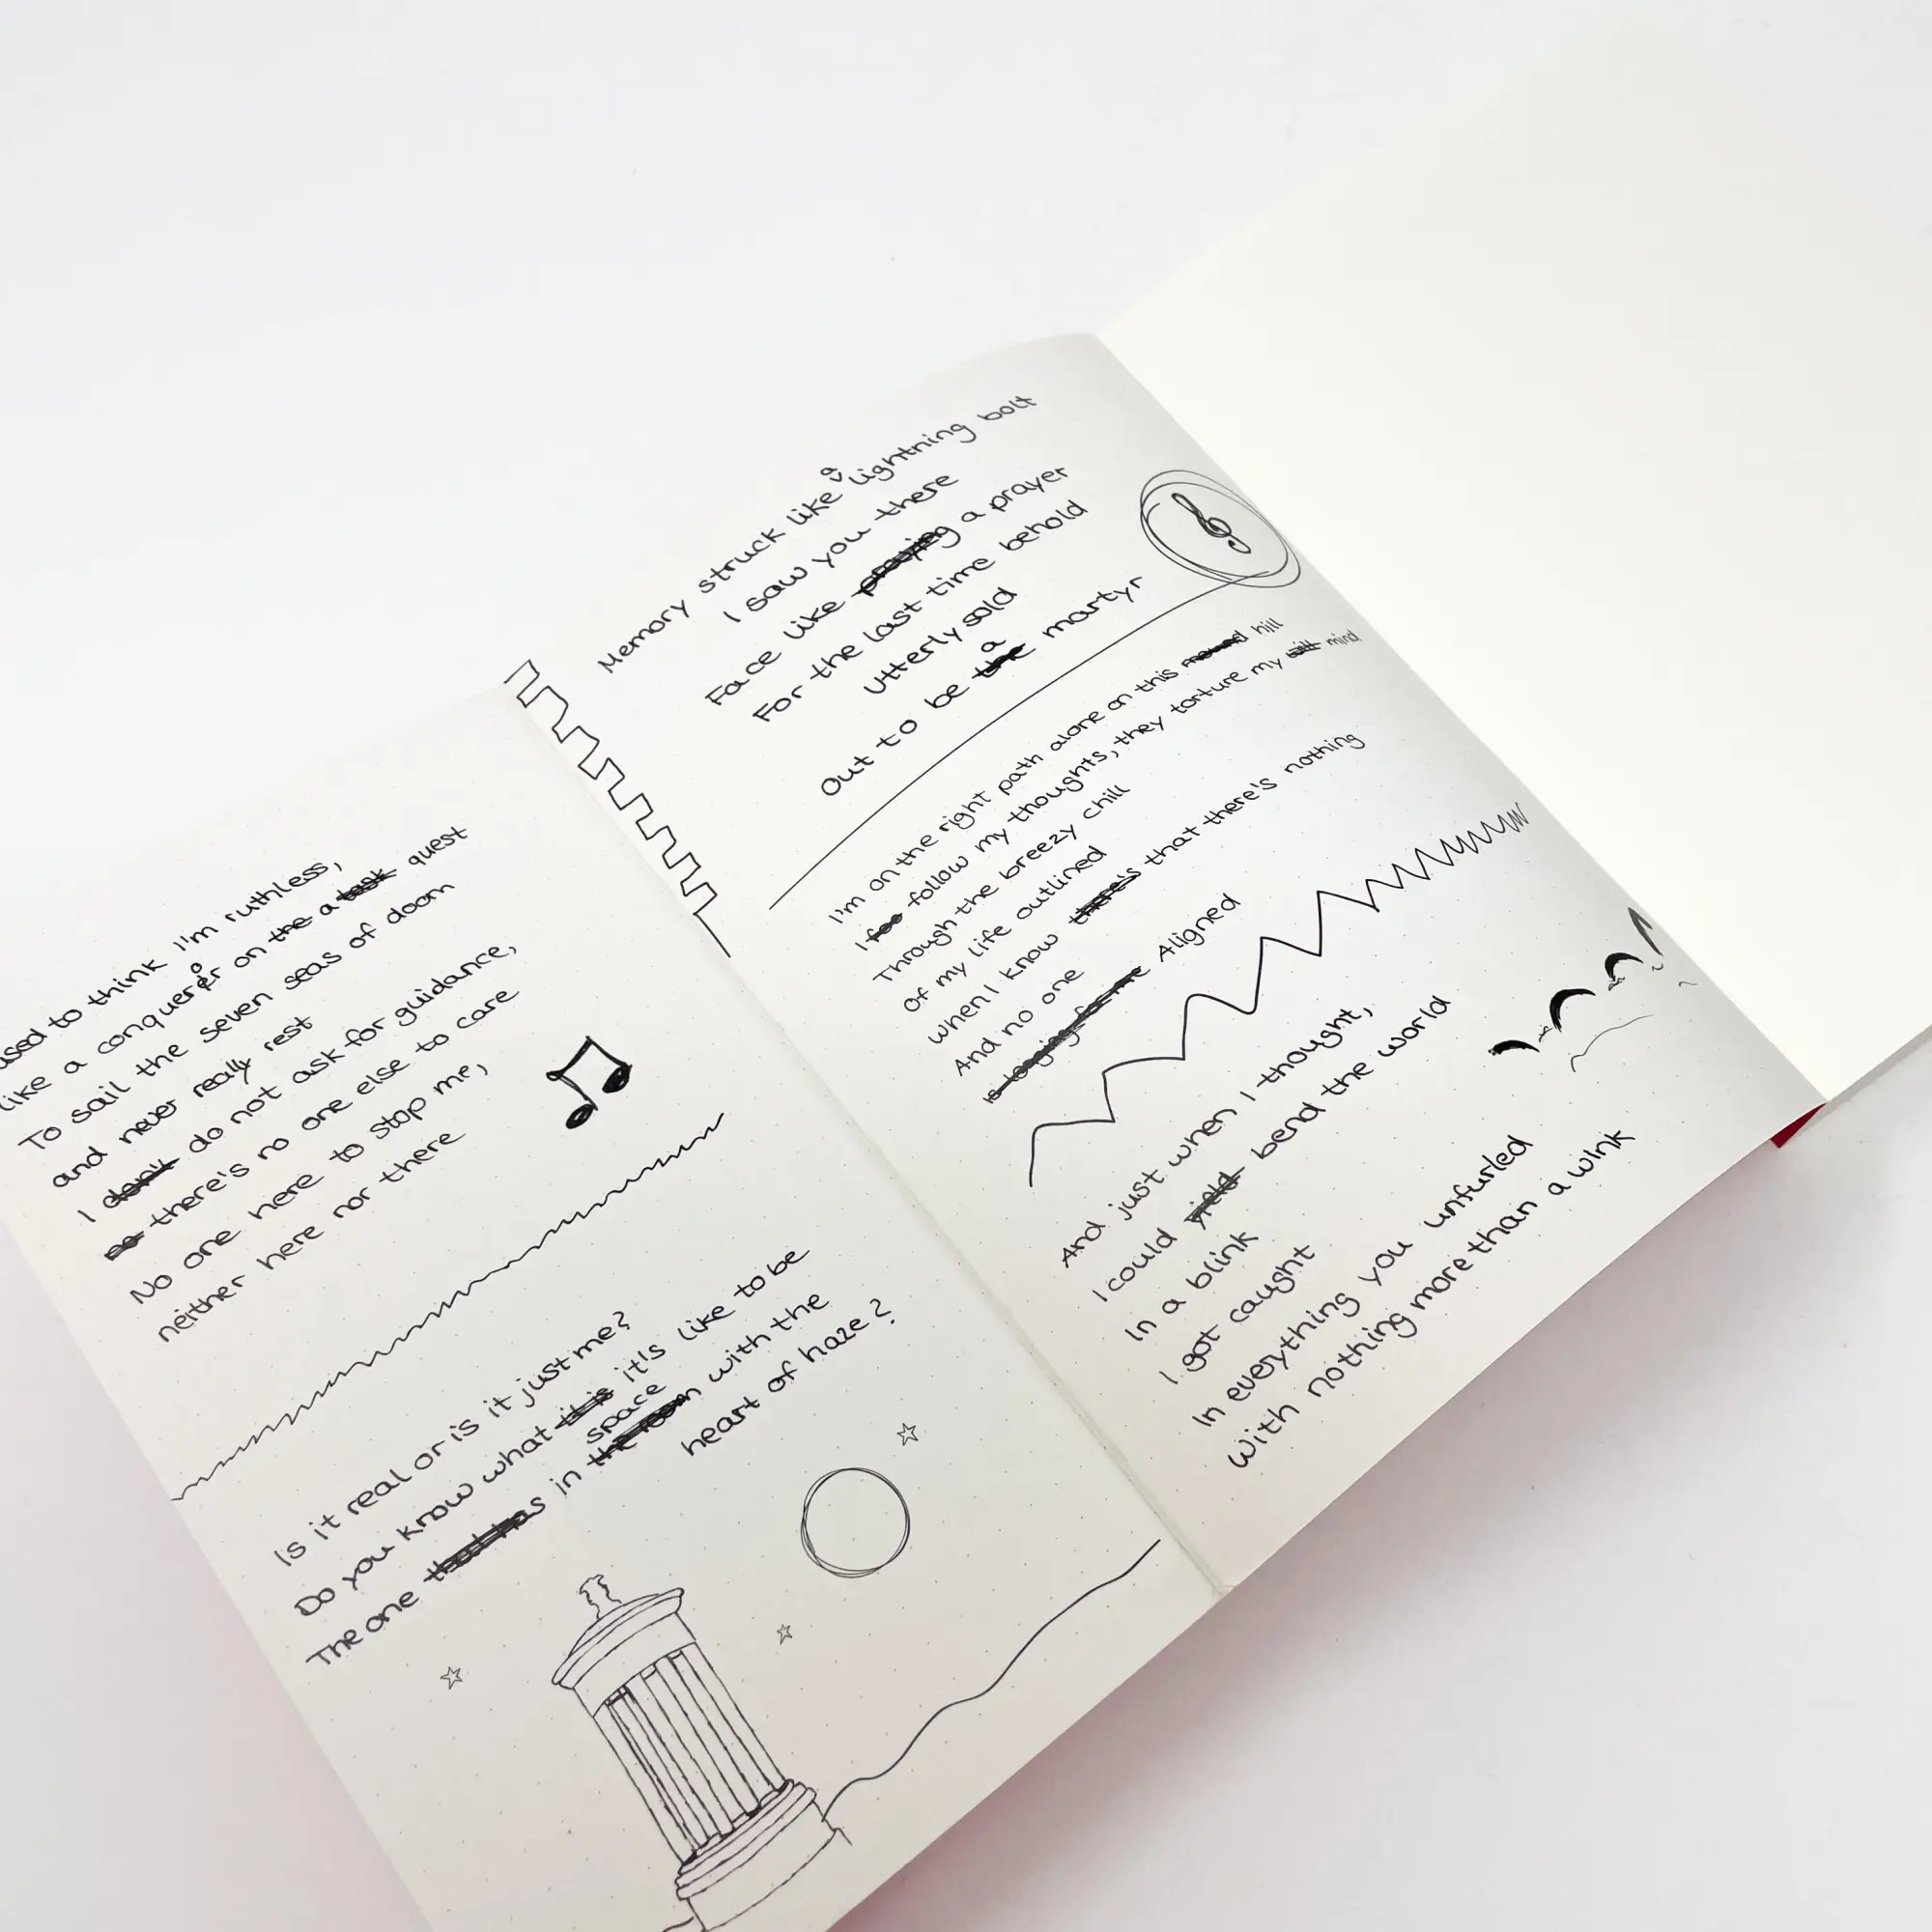 used to think I'm ruthless,
like a conqueror on the a task quest
To sail the seven seas of doom
and never really rest
I dont do not ask for guidance,
so there's no one else to care
No one here to stop me,
neither here nor there
Is it real or is it just me?
Do you know what it is it's like to be
The one that has in the room space with the
heart of haze?
Memory struck like a lightning bolt
I saw you there
Face like praying a prayer
For the last time behold
Utterly sold
Out to be the a martyr
I'm on the right path alone on this hill
I foo follow my thoughts, they torture my mind
Through the breezy chill
Of my life outlined
When I know there's that there's nothing
And no one
is longing for me Aligned
And just when I thought,
I could yield bend the world
In a blink
I got caught
In everything you unfurled
With nothing more than a wink